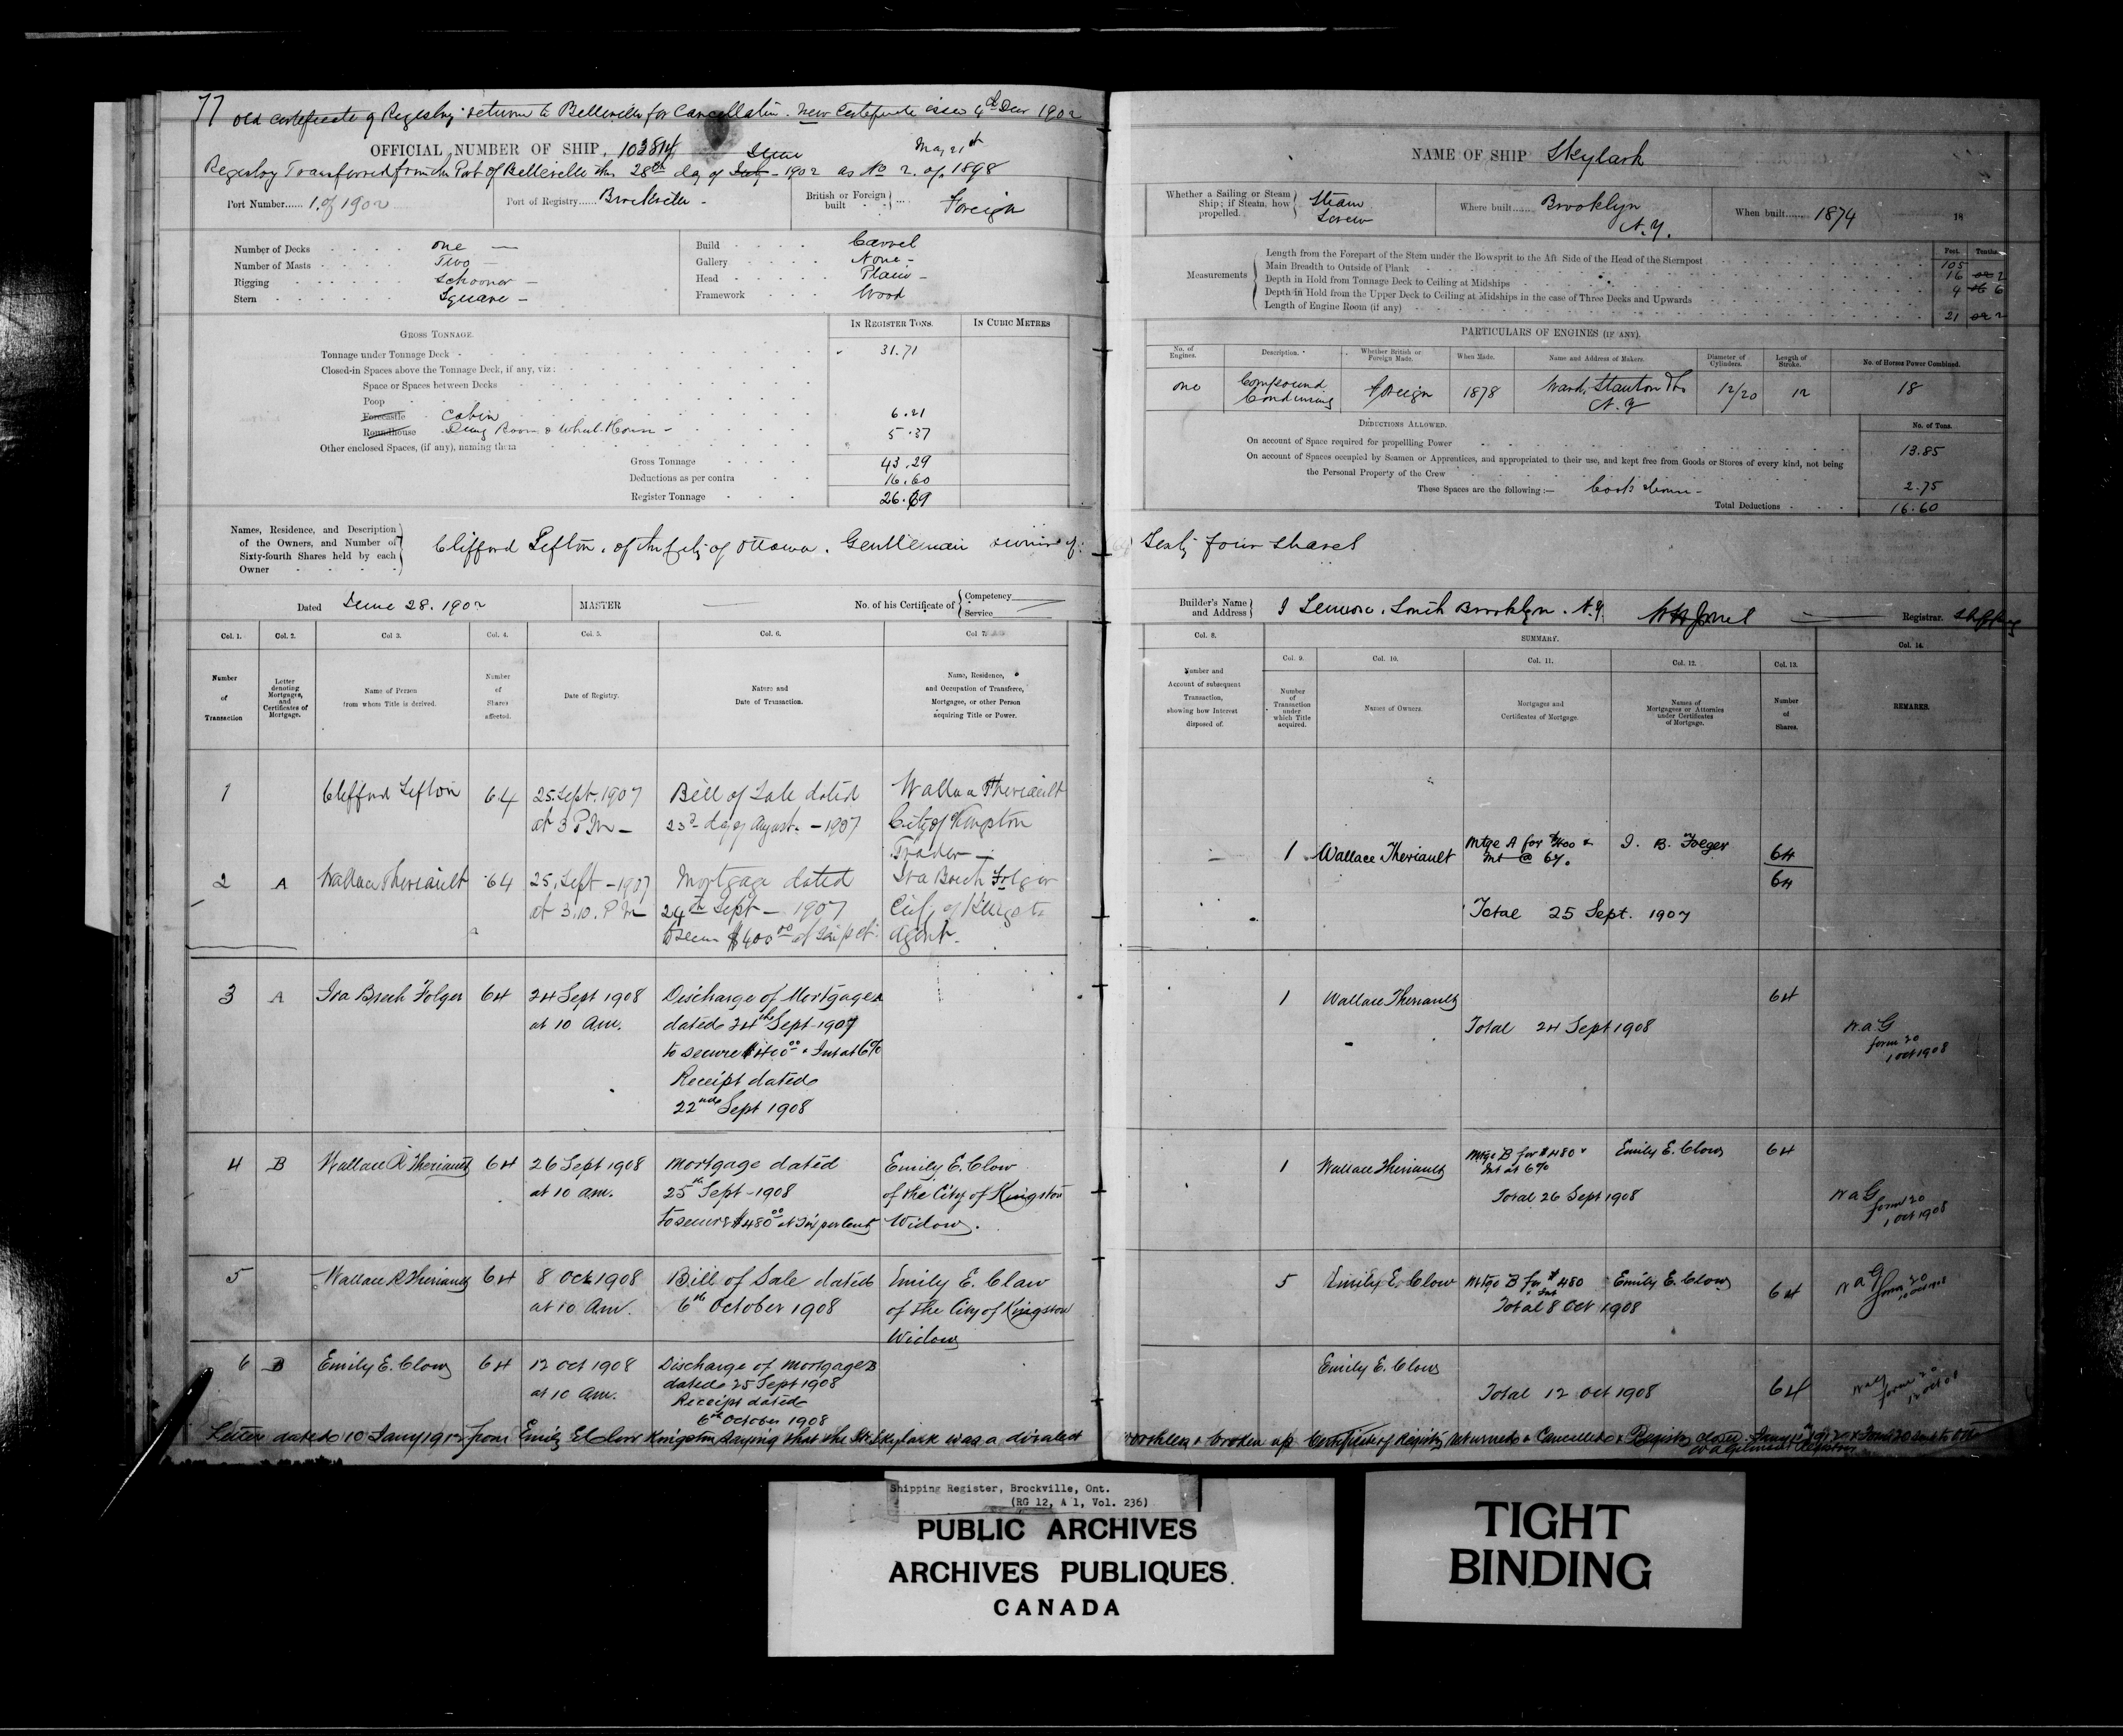 77 Old Certificate of Registry returned to Belleville for Cancellation. New Certificate issued 4th Decr 1902
OFFICIAL NUMBER OF SHIP. 103814
Registry Transferred from the Port of Belleville this 28th day of July June 1902 as No 2. of May 21st 1898
Port Number...... 1. of 1902
Port of Registry...... Brockville -
British or Foreign built .... Foreign
Number of Decks one —
Number of Masts Two —
Rigging Schooner —
Stern Square —
Build Carvel
Gallery None -
Head Plain -
Framework Wood
GROSS TONNAGE.
IN REGISTER TONS.
IN CUBIC METRES
Tonnage under Tonnage Deck 31.71
Closed-in Spaces above the Tonnage Deck, if any, viz:
Space or Spaces between Decks
Poop
Forecastle Cabin 6.21
Roundhouse Dining Room & Wheel House - 5.37
Other enclosed Spaces, (if any), naming them
Gross Tonnage 43.29
Deductions as per contra 16.60
Register Tonnage 26.69
Names, Residence, and Description of the Owners, and Number of Sixty-fourth Shares held by each Owner
Clifford Sifton, of the City of Ottawa. Gentleman owning of:
Dated June 28. 1902
MASTER —
No. of his Certificate of Competency Service
Col. 1. Col. 2. Col 3. Col. 4. Col. 5. Col. 6. Col 7.
Number of Transaction
Letter denoting Mortgages, and Certificates of Mortgage.
Name of Person from whom Title is derived.
Number of Shares affected.
Date of Registry.
Nature and Date of Transaction.
Name, Residence, and Occupation of Transferee, Mortgagee, or other Person acquiring Title or Power.
1 Clifford Sifton 64 25. Sept. 1907 Bill of Sale dated Wallace Theriault
at 3 P.M — 23d day of August. - 1907 City of Kingston
Trader —
2 A Wallace Theriault 64 25. Sept - 1907 Mortgage dated Ira Breck Folger
at 3.10. P M 24th Sept — 1907 City of Kingston
to secure $400.00 at Six p ct. Agent.
3 A Ira Breck Folger 64 24 Sept 1908 Discharge of Mortgage A
at 10 am. dated 24th Sept - 1907
to secure $400.00 & Int at 6%
Receipt dated
22nd Sept 1908
4 B Wallace R Theriault 64 26 Sept 1908 Mortgage dated Emily E. Clow
at 10 am. 25th Sept - 1908 of the City of Kingston
to secure $480.00 at Six per Cent Widow.
5 Wallace R Theriault 64 8 Oct 1908 Bill of Sale dated Emily E. Clow
at 10 am. 6th October 1908 of the City of Kingston
Widow
6 B Emily E. Clow 64 12 Oct 1908 Discharge of Mortgage B
at 10 am. dated 25 Sept 1908
Receipt dated
6th October 1908
Letter dated 10 Jany 1912 from Emily E Clow Kingston saying that the Str. Skylark was a
NAME OF SHIP Skylark
Whether a Sailing or Steam Ship; if Steam, how propelled. Steam Screw
Where built...... Brooklyn N.Y.
When built...... 1874 18
Measurements
Feet. Tenths.
Length from the Forepart of the Stem under the Bowsprit to the Aft Side of the Head of the Sternpost 105
Main Breadth to Outside of Plank 16 2
Depth in Hold from Tonnage Deck to Ceiling at Midships 4 6
Depth in Hold from the Upper Deck to Ceiling at Midships in the case of Three Decks and Upwards
Length of Engine Room (if any) 21 2
PARTICULARS OF ENGINES (IF ANY).
No. of Engines.
Description.
Whether British or Foreign Made.
When Made.
Name and Address of Makers.
Diameter of Cylinders.
Length of Stroke.
No. of Horses Power Combined.
one Compound Condensing foreign 1878 Ward, Stanton & Co N.Y 12/20 12 18
DEDUCTIONS ALLOWED.
No. of Tons.
On account of Space required for propelling Power 13.85
On account of Spaces occupied by Seamen or Apprentices, and appropriated to their use, and kept free from Goods or Stores of every kind, not being
the Personal Property of the Crew
These Spaces are the following:— 2.75
Total Deductions 16.60
Sixty four shares
Builder's Name and Address South Brooklyn. N.Y.
Registrar. Shipping
Col. 8.
SUMMARY.
Col. 9. Col. 10. Col. 11. Col. 12. Col. 13. Col. 14.
Number and Account of subsequent Transaction, showing how Interest disposed of.
Number of Transaction under which Title acquired.
Names of Owners.
Mortgages and Certificates of Mortgage.
Names of Mortgagees or Attornies under Certificates of Mortgage.
Number of Shares.
REMARKS.
1 Wallace Theriault Mtge A for $400 & Int @ 6%. I. B. Folger 64
64
Total 25 Sept. 1907
1 Wallace Theriault 64
Total 24 Sept 1908
W.a.G
form 20
1 Oct 1908
1 Wallace Theriault Mtge B for $480 & Int at 6% Emily E. Clow 64
Total 26 Sept 1908
W a G
form 20
1 Oct 1908
5 Emily E. Clow Mtge B for $480 & Int Emily E. Clow 64
Total 8 Oct 1908
W a G
form 20
Emily E. Clow
Total 12 Oct 1908 64
WaG
form 20
worthless & broken up. Certificate of Registry returned & Cancelled & Registry closed
Shipping Register, Brockville, Ont.
(RG 12, A 1, Vol. 236)
PUBLIC ARCHIVES
ARCHIVES PUBLIQUES
CANADA
TIGHT
BINDING